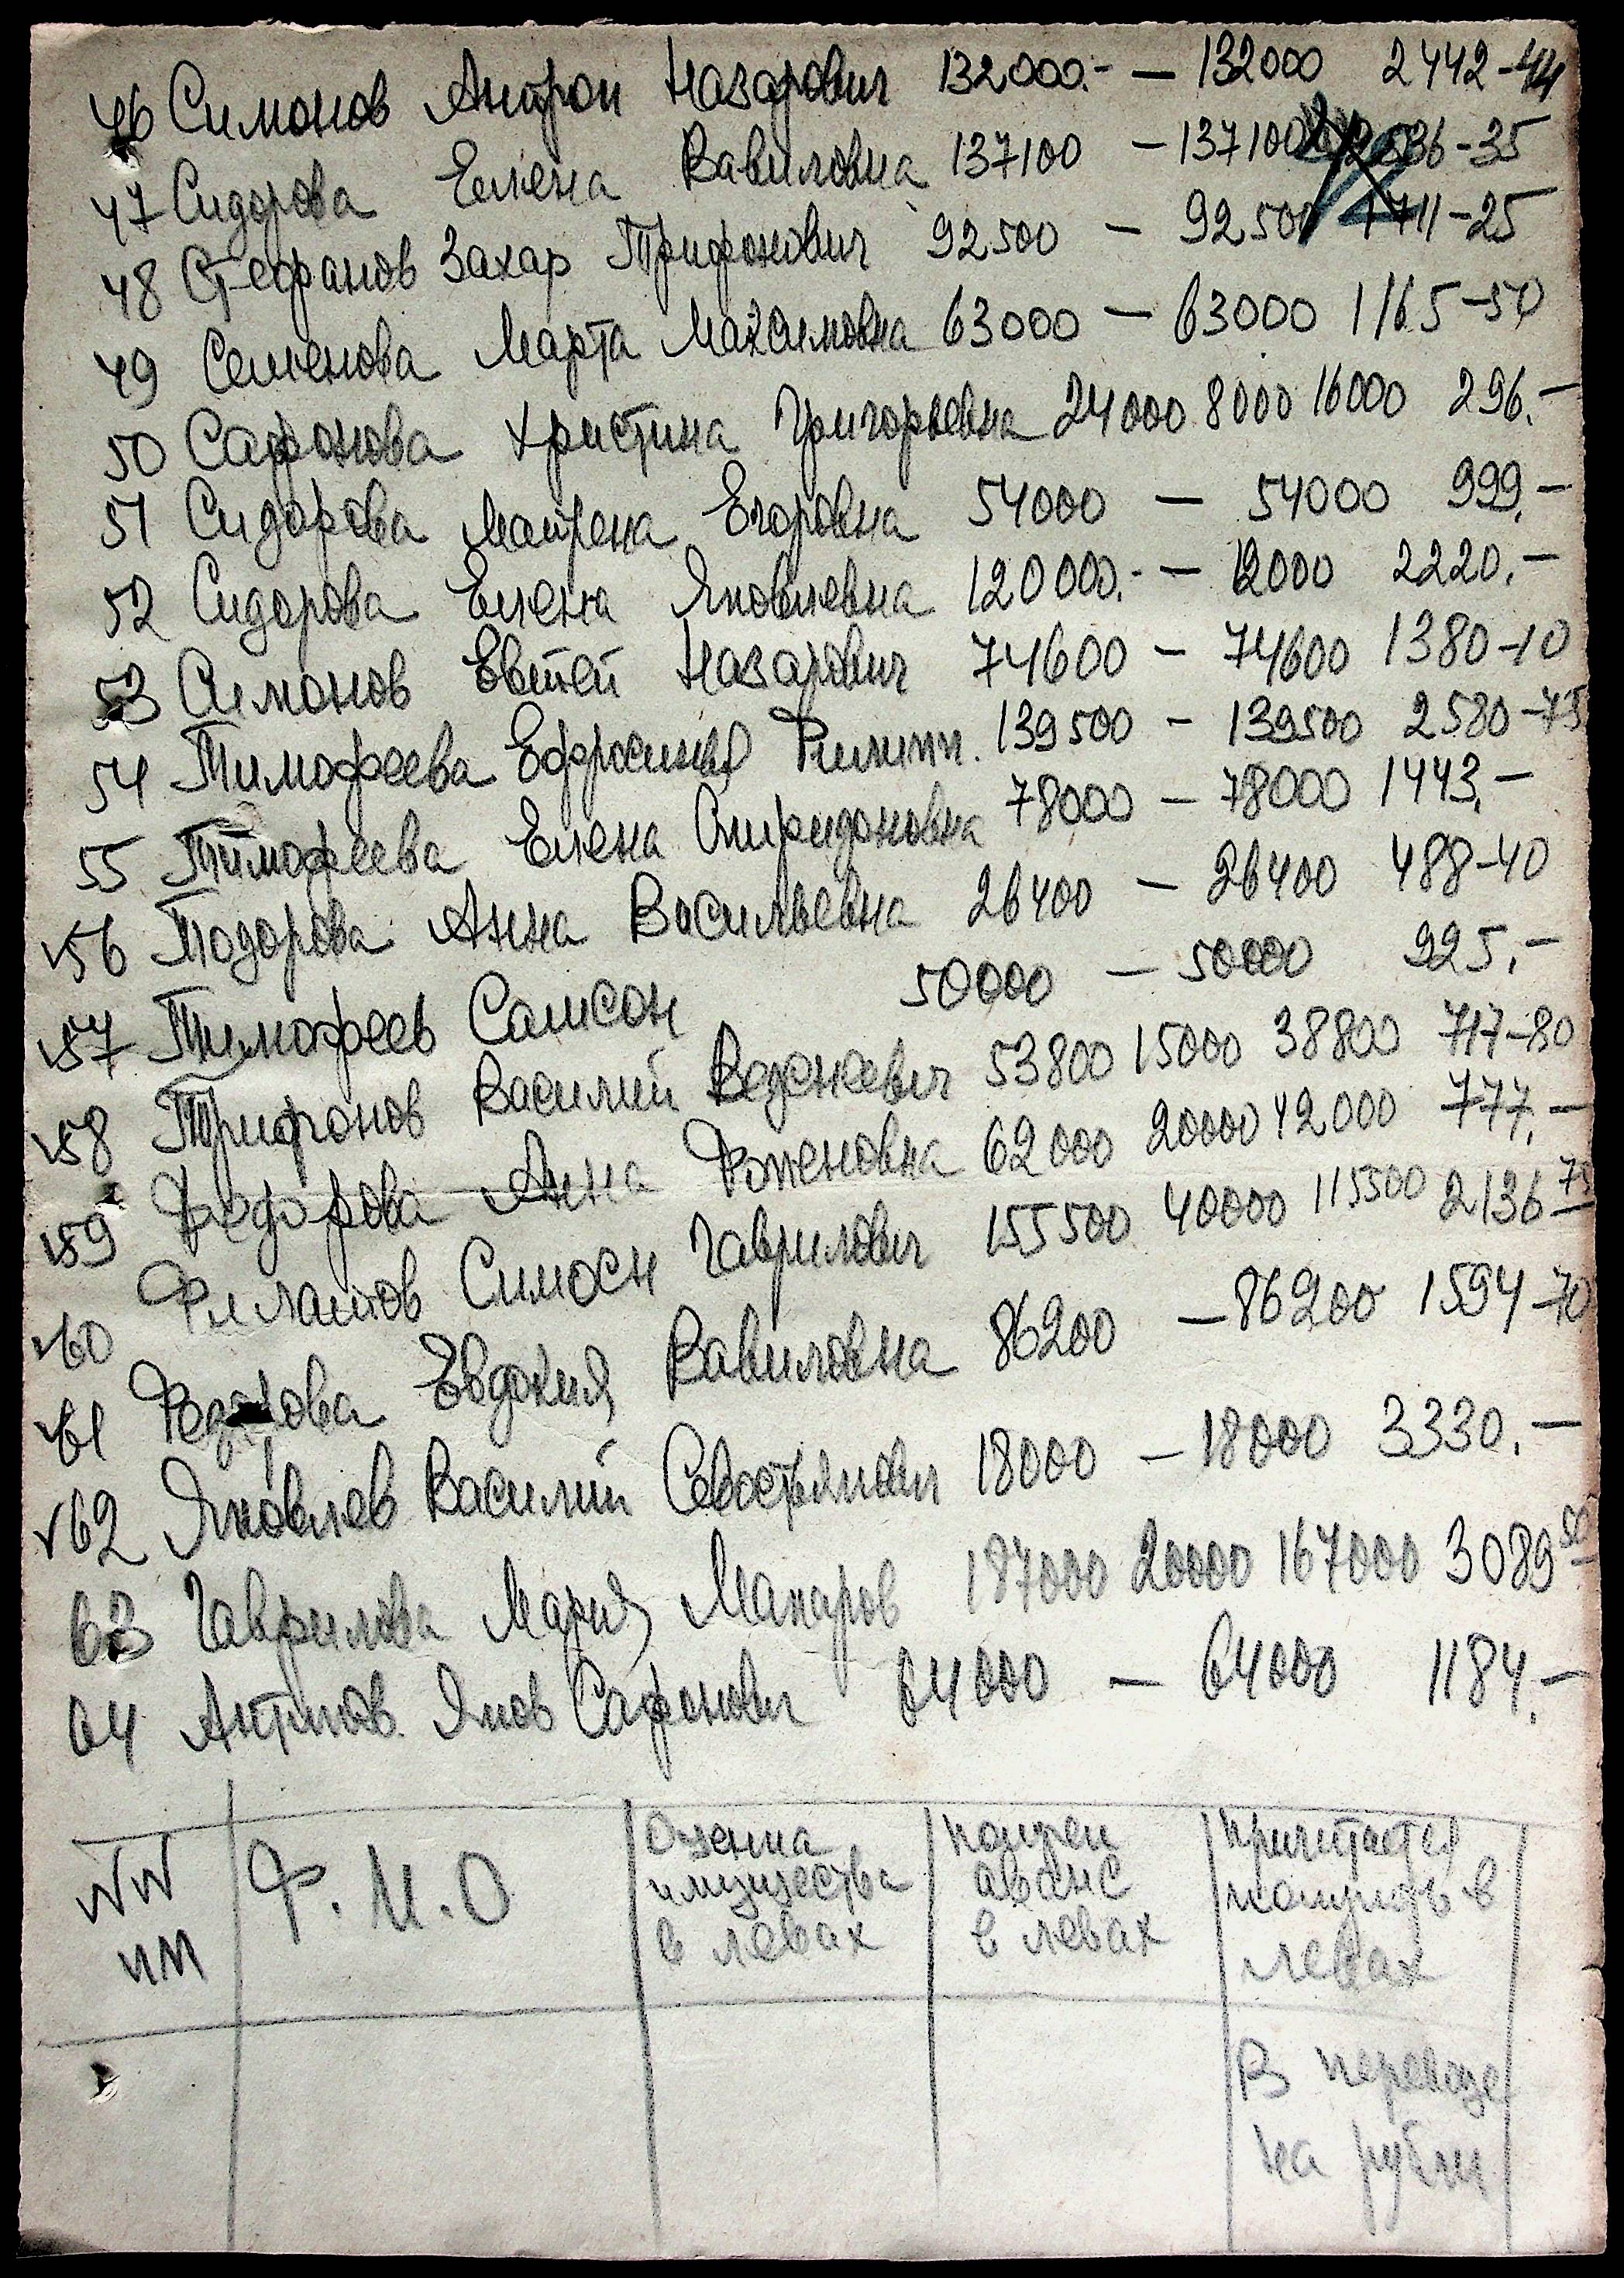 46 Симонов Андрон Назарович 132000.- — 132000 2442-44
47 Сидорова Елена Вавиловна 137100 — 137100 2536-35
48 Стефанов Захар Трифонович 92500 — 92500 1711-25
49 Семенова Марта Максимовна 63000 — 63000 1165-50
50 Сафронова Христина Григорьевна 24000 8000 16000 296.-
51 Сидорова Матрена Егоровна 54000 — 54000 999.-
52 Сидорова Елена Яковлевна 120000.- — 12000 2220.-
53 Симонов Евтей Назарович 74600 — 74600 1380-10
54 Тимофеева Ефросинья Филипп. 139500 — 139500 2580-75
55 Тимофеева Елена Спиридоновна 78000 — 78000 1443.-
56 Тодорова Анна Васильевна 26400 — 26400 488-40
57 Тимофеев Самсон 50000 — 50000 925.-
58 Трифонов Василий Веденеевич 53800 15000 38800 717-80
59 Федорова Анна Фоменовна 62000 20000 42000 777.-
60 Филатов Симоон Гаврилович 155500 40000 115500 2136 75
61 Евдокия Вавиловна 86200 — 86200 1594-70
62 Яковлев Василий Севостьянович 18000 — 18000 3330.-
63 Гаврилова Мария Макаров 187000 20000 167000 3089 50
64 Антипов Яков Сафонович 64000 — 64000 1184.-
NN Ф.И.О Оценка получен причитается
пп имущества аванс получить в
в левах в левах левах
В переводе
на рубли